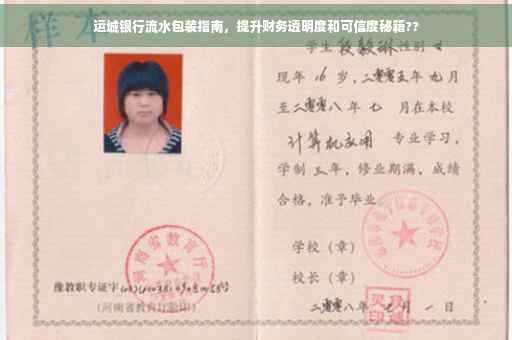 运城银行流水包装指南，提升财务透明度和可信度秘籍??
样本
学生 段毅琳 性别 女
现年 16 岁，二零零五年 九月
至二零零八年 七 月在本校
计算机应用 专业学习，
学制 三 年，修业期满，成绩
合格，准予毕业
学校（章）
校长（章）
河南省教育厅
豫教职专证字
（河南省教育厅验印）
二零零八年 月 一 日